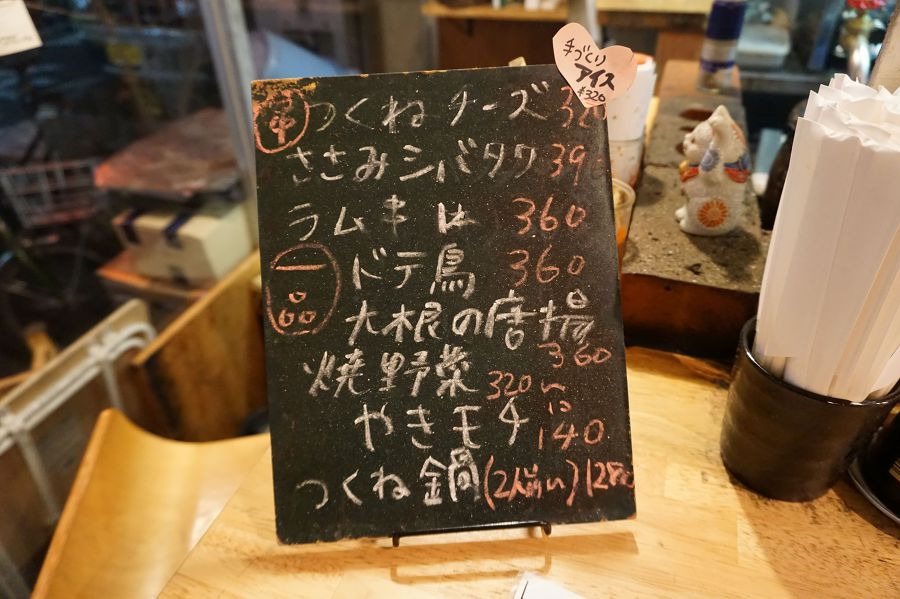 手づくり
アイス
¥320
串 つくねチーズ 320
ささみシバタワ 39
ラム 360
ドテ鳥 360
大根の唐揚
360
焼野菜 320〜
やきモチ 140
つくね鍋 (2人前〜) 1280